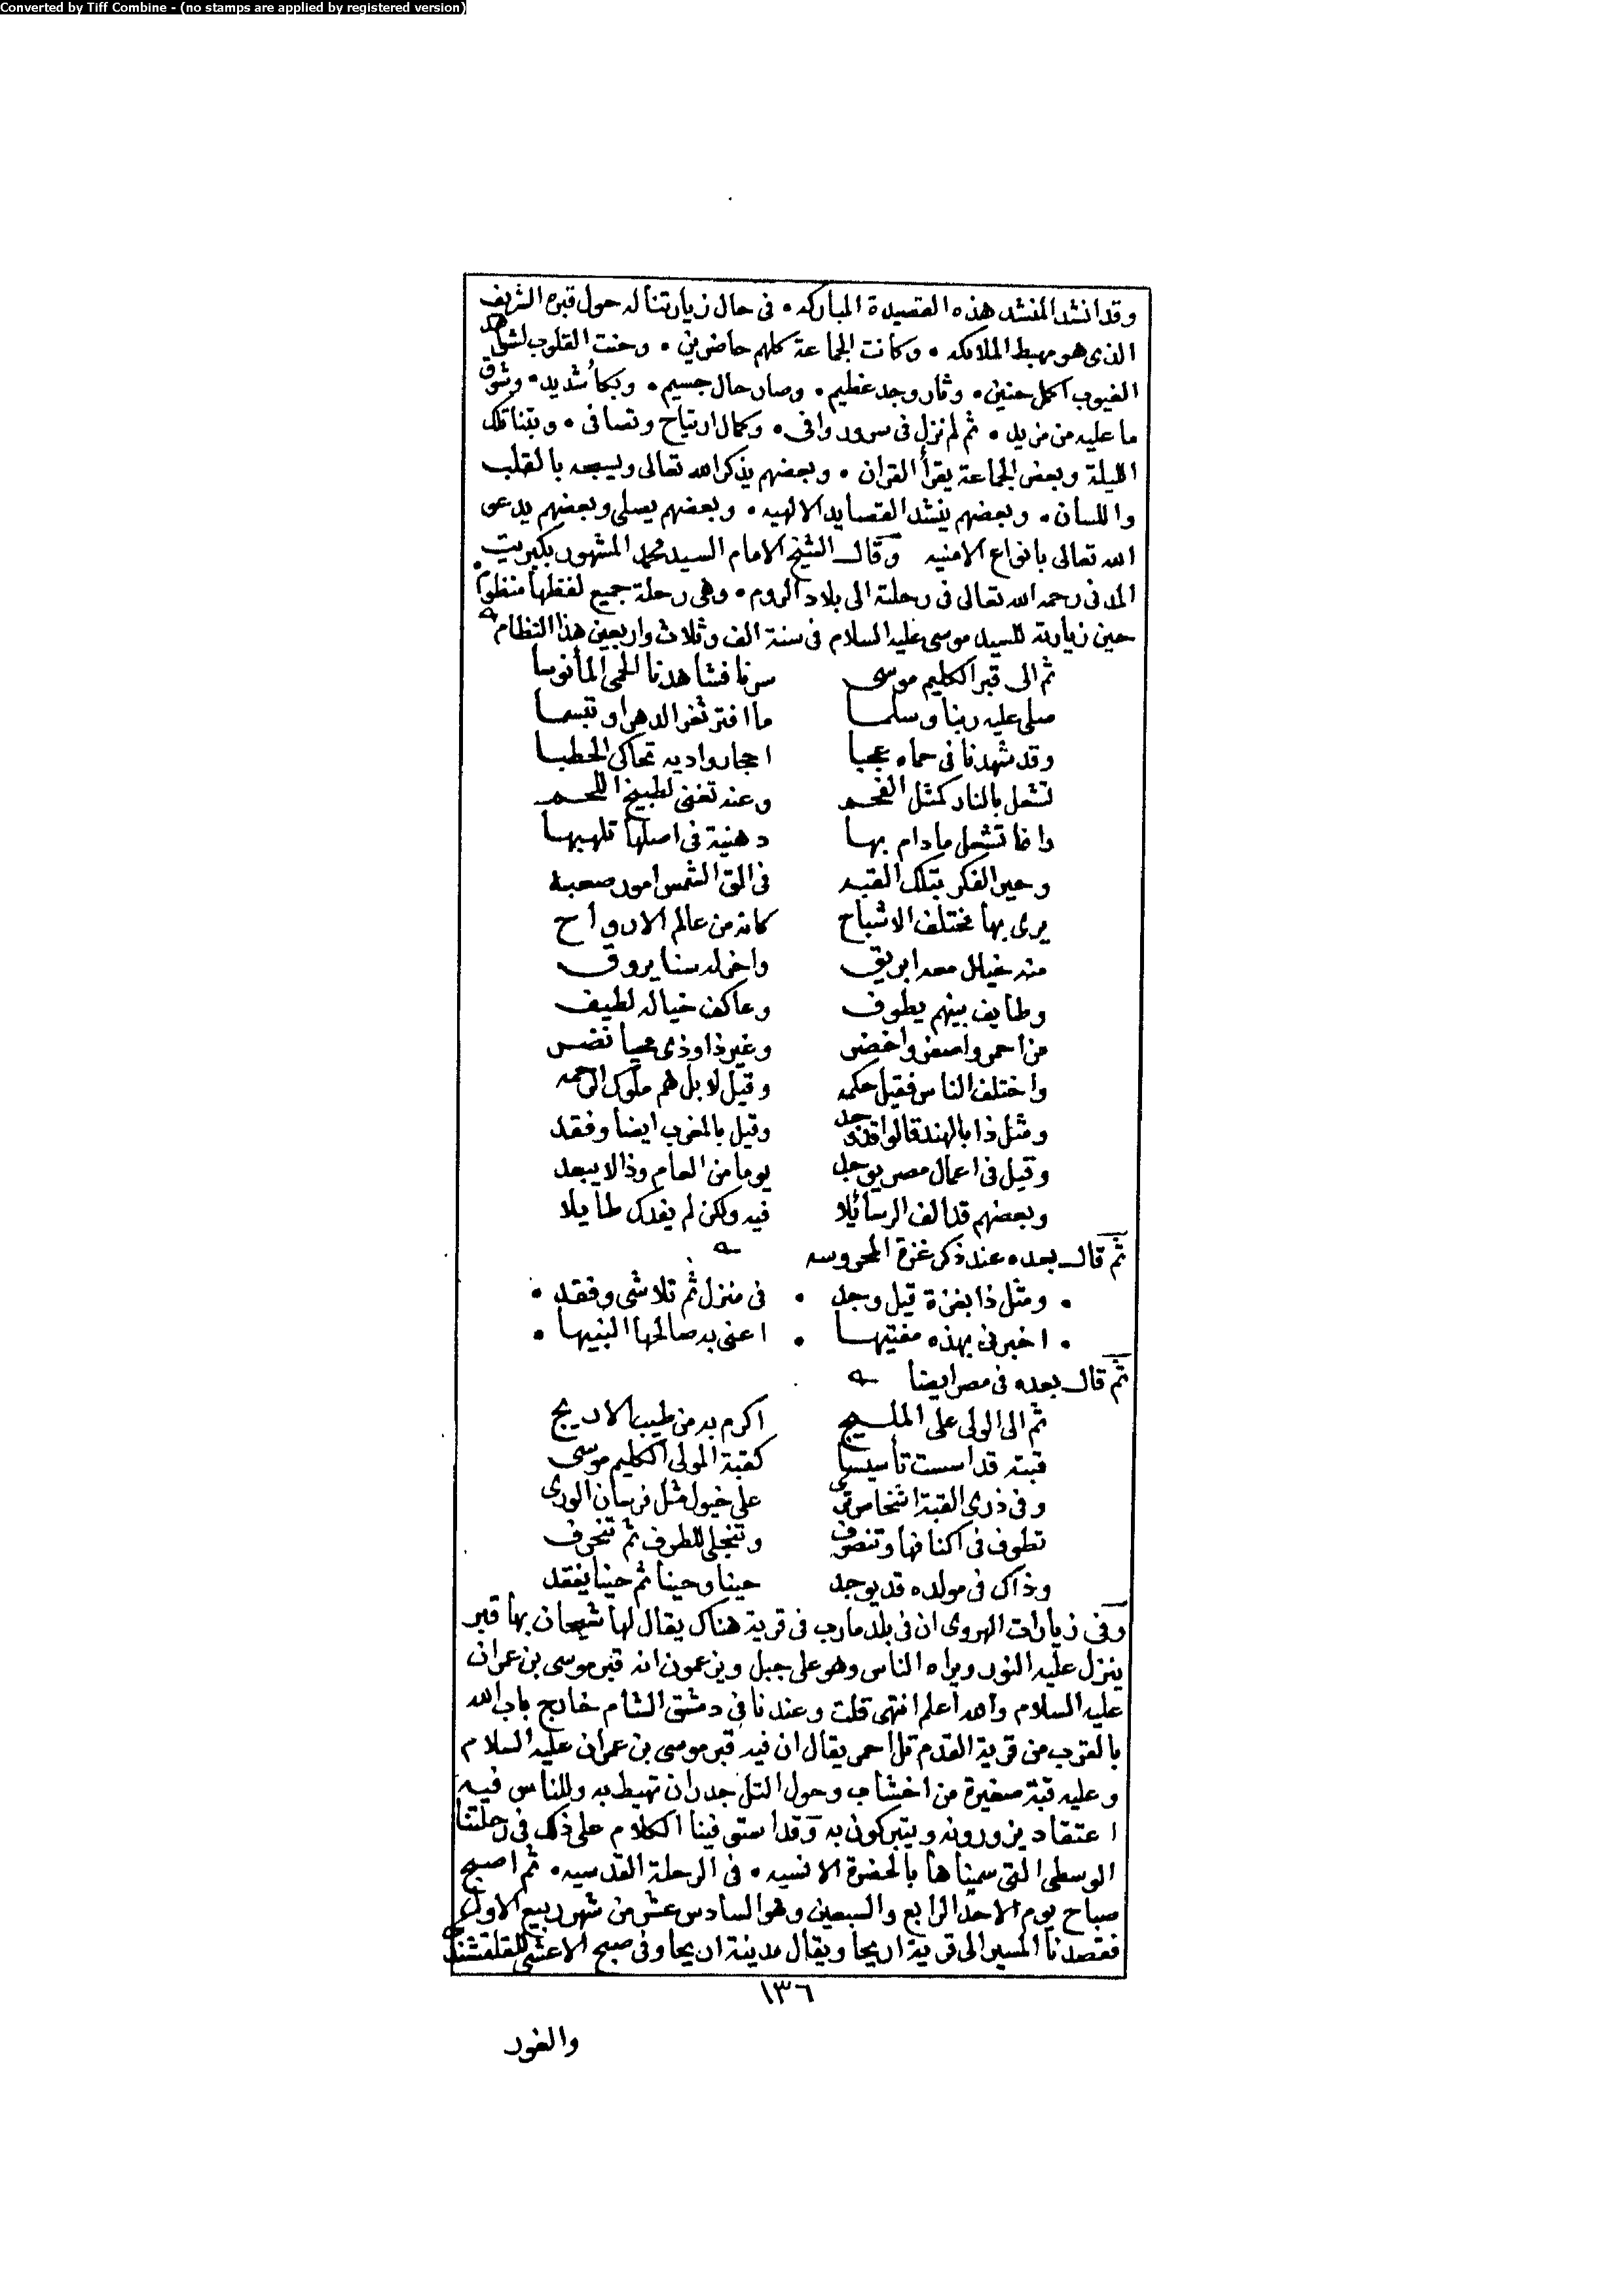 Converted by Tiff Combine - (no stamps are applied by registered version)
وقد انشد المنشد هذه القصيدة المباركه • فى حال زيارتنا له حول قبره الشريف
الذى هو مهبط الملائكه • وكانت الجماعة كلهم حاضرين • وحنت القلوب لشواهد
الغيوب اكمل حنين • وثار وجد عظيم • وصار حال جسيم • وبكأ شديد • وشوق
ما عليه من مزيد • ثم لم نزل فى سرور وافى • وكمال ارتياح وتصافى • وبتنا تلك
الليلة وبعض الجماعة يقرأ القران • وبعضهم يذكر الله تعالى ويسبحه بالقلب
واللسان • وبعضهم ينشد القصايد الالهيه • وبعضهم يصلى وبعضهم يدعو
الله تعالى بانواع الامنيه وقال الشيخ الامام السيد محمد المشهور بكبريت
المدنى رحمه الله تعالى فى رحلته الى بلاد الروم • وهى رحلة جميع لفظها منظوم •
حين زيارته للسيد موسى عليه السلام فى سنة الف وثلاث واربعين هذا النظام
ثم الى قبر الكليم موسى سرنا فشاهدنا الحمى المأنوسا
صلى عليه ربنا وسلما ما افتر ثغر الدهر او تبسما
وقد شهدنا فى حماه عجبا احجار واديه تحاكى الحطبا
تشعل بالنار كمثل الفحم وعنه تغنى لطبيخ اللحم
وانما تشعل مادام بها دهنية فى اصلها تلهبها
وحير الفكر بتلك القبه فى الق الشمس امور صعبه
يرى بها مختلف الاشباح كانه من عالم الارواح
منه خيال معه ابريق واخر له سنا يروق
وطايف بينهم يطوف وعاكف خياله لطيف
من احمر واصفر واخضر وغير ذا وذى محيا نضر
واختلف الناس فقيل حكمه وقيل لا بل هم ملوك الرحمه
ومثل ذا بالهند قالوا قد وجد وقيل بالمغرب ايضا وفقد
وقيل فى اعمال مصر يوجد يوما من العام وذا لا يبعد
وبعضهم قد الف الرسائلا فيه ولكن لم يفدك طايلا
ثم قال بعده عند ذكر غزة المحروسه
• ومثل ذا بغزة قيل وجد • فى منزل ثم تلاشى وفقد •
• اخبرنى بهذه مفتيها • اعنى به صالحها النبيها •
ثم قال بعده فى مصر ايضا
ثم الى الولى على المليجى اكرم به من طيب الاريج
قبته قد اسست تأسيسا كقبة المولى الكليم موسى
وفى ذرى القبة اشخاص ترى على خيول مثل فرسان الورى
تطوف فى اكنافها وتنصرف وتنجلى للطرف ثم تنحرف
وذاك فى مولده قد يوجد حينا وحينا ثم حينا يفقد
وفى زيارات الهروى ان فى بلد مارب فى قرية هناك يقال لها شيحان بها قبر
ينزل عليه النور ويراه الناس وهو على جبل ويزعمون انه قبر موسى بن عمران
عليه السلام والله اعلم انتهى قلت وعندنا فى دمشق الشام خارج باب الله
بالقرب من قرية القدم تل احمر يقال ان فيه قبر موسى بن عمران عليه السلام
وعليه قبة صغيرة من اخشاب وحول التل جدران تحيط به وللناس فيه
اعتقاد يزورونه ويتبركون به وقد استوفينا الكلام على ذلك فى رحلتنا
الوسطى التى سميناها بالحضرة الانسيه • فى الرحلة القدسيه • ثم اصبح
صباح يوم الاحد الرابع والسبعين وهو السادس عشر من شهر ربيع الاول
فقصدنا المسير الى قرية اريحا ويقال مدينة اريحا وفى صبح الاعشى للقلقشندى
١٣٦
والغور